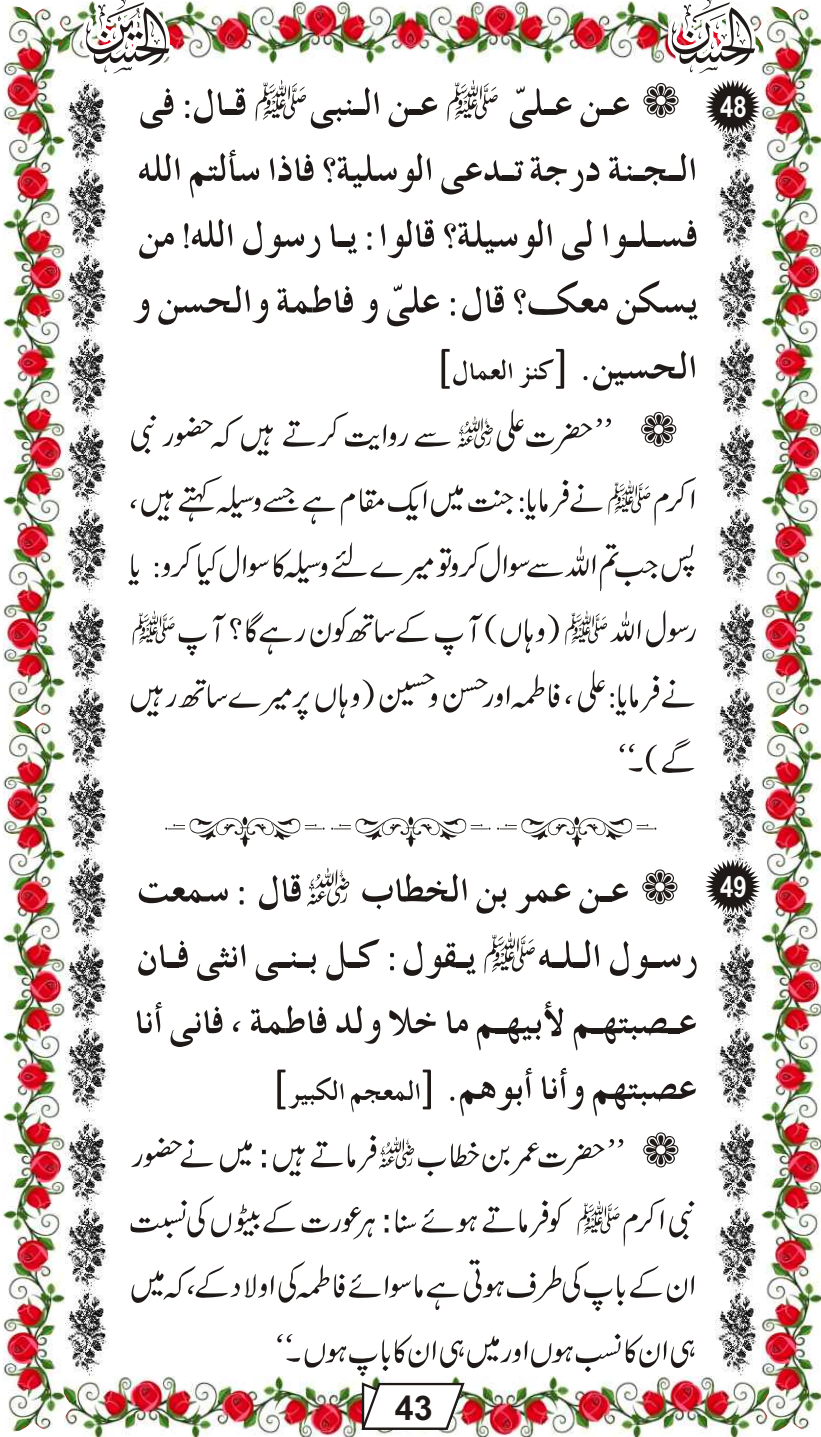 الحسنین الحسنین
48 ❁ عن علیّ ﷺ عن النبی ﷺ قال: فی
الجنة درجة تدعی الوسلیة؟ فاذا سألتم الله
فسلوا لی الوسیلة؟ قالوا: یا رسول الله! من
یسکن معک؟ قال: علیّ و فاطمة والحسن و
الحسین. [کنز العمال]
❁ ’’حضرت علی رضی اللہ عنہ سے روایت کرتے ہیں کہ حضور نبی
اکرم ﷺ نے فرمایا: جنت میں ایک مقام ہے جسے وسیلہ کہتے ہیں،
پس جب تم اللہ سے سوال کروتو میرے لئے وسیلہ کا سوال کیا کرو: یا
رسول اللہ ﷺ (وہاں) آپ کے ساتھ کون رہے گا؟ آپ ﷺ
نے فرمایا: علی، فاطمہ اور حسن وحسین (وہاں پر میرے ساتھ رہیں
گے)۔‘‘
49 ❁ عن عمر بن الخطاب رضی اللہ عنہ قال : سمعت
رسول الله ﷺ یقول : کل بنی انثی فان
عصبتهم لأبیهم ما خلا ولد فاطمة ، فانی أنا
عصبتهم وأنا أبوهم. [المعجم الکبیر]
❁ ’’حضرت عمر بن خطاب رضی اللہ عنہ فرماتے ہیں : میں نے حضور
نبی اکرم ﷺ کو فرماتے ہوئے سنا: ہر عورت کے بیٹوں کی نسبت
ان کے باپ کی طرف ہوتی ہے ماسوائے فاطمہ کی اولاد کے، کہ میں
ہی ان کا نسب ہوں اور میں ہی ان کا باپ ہوں۔‘‘
43